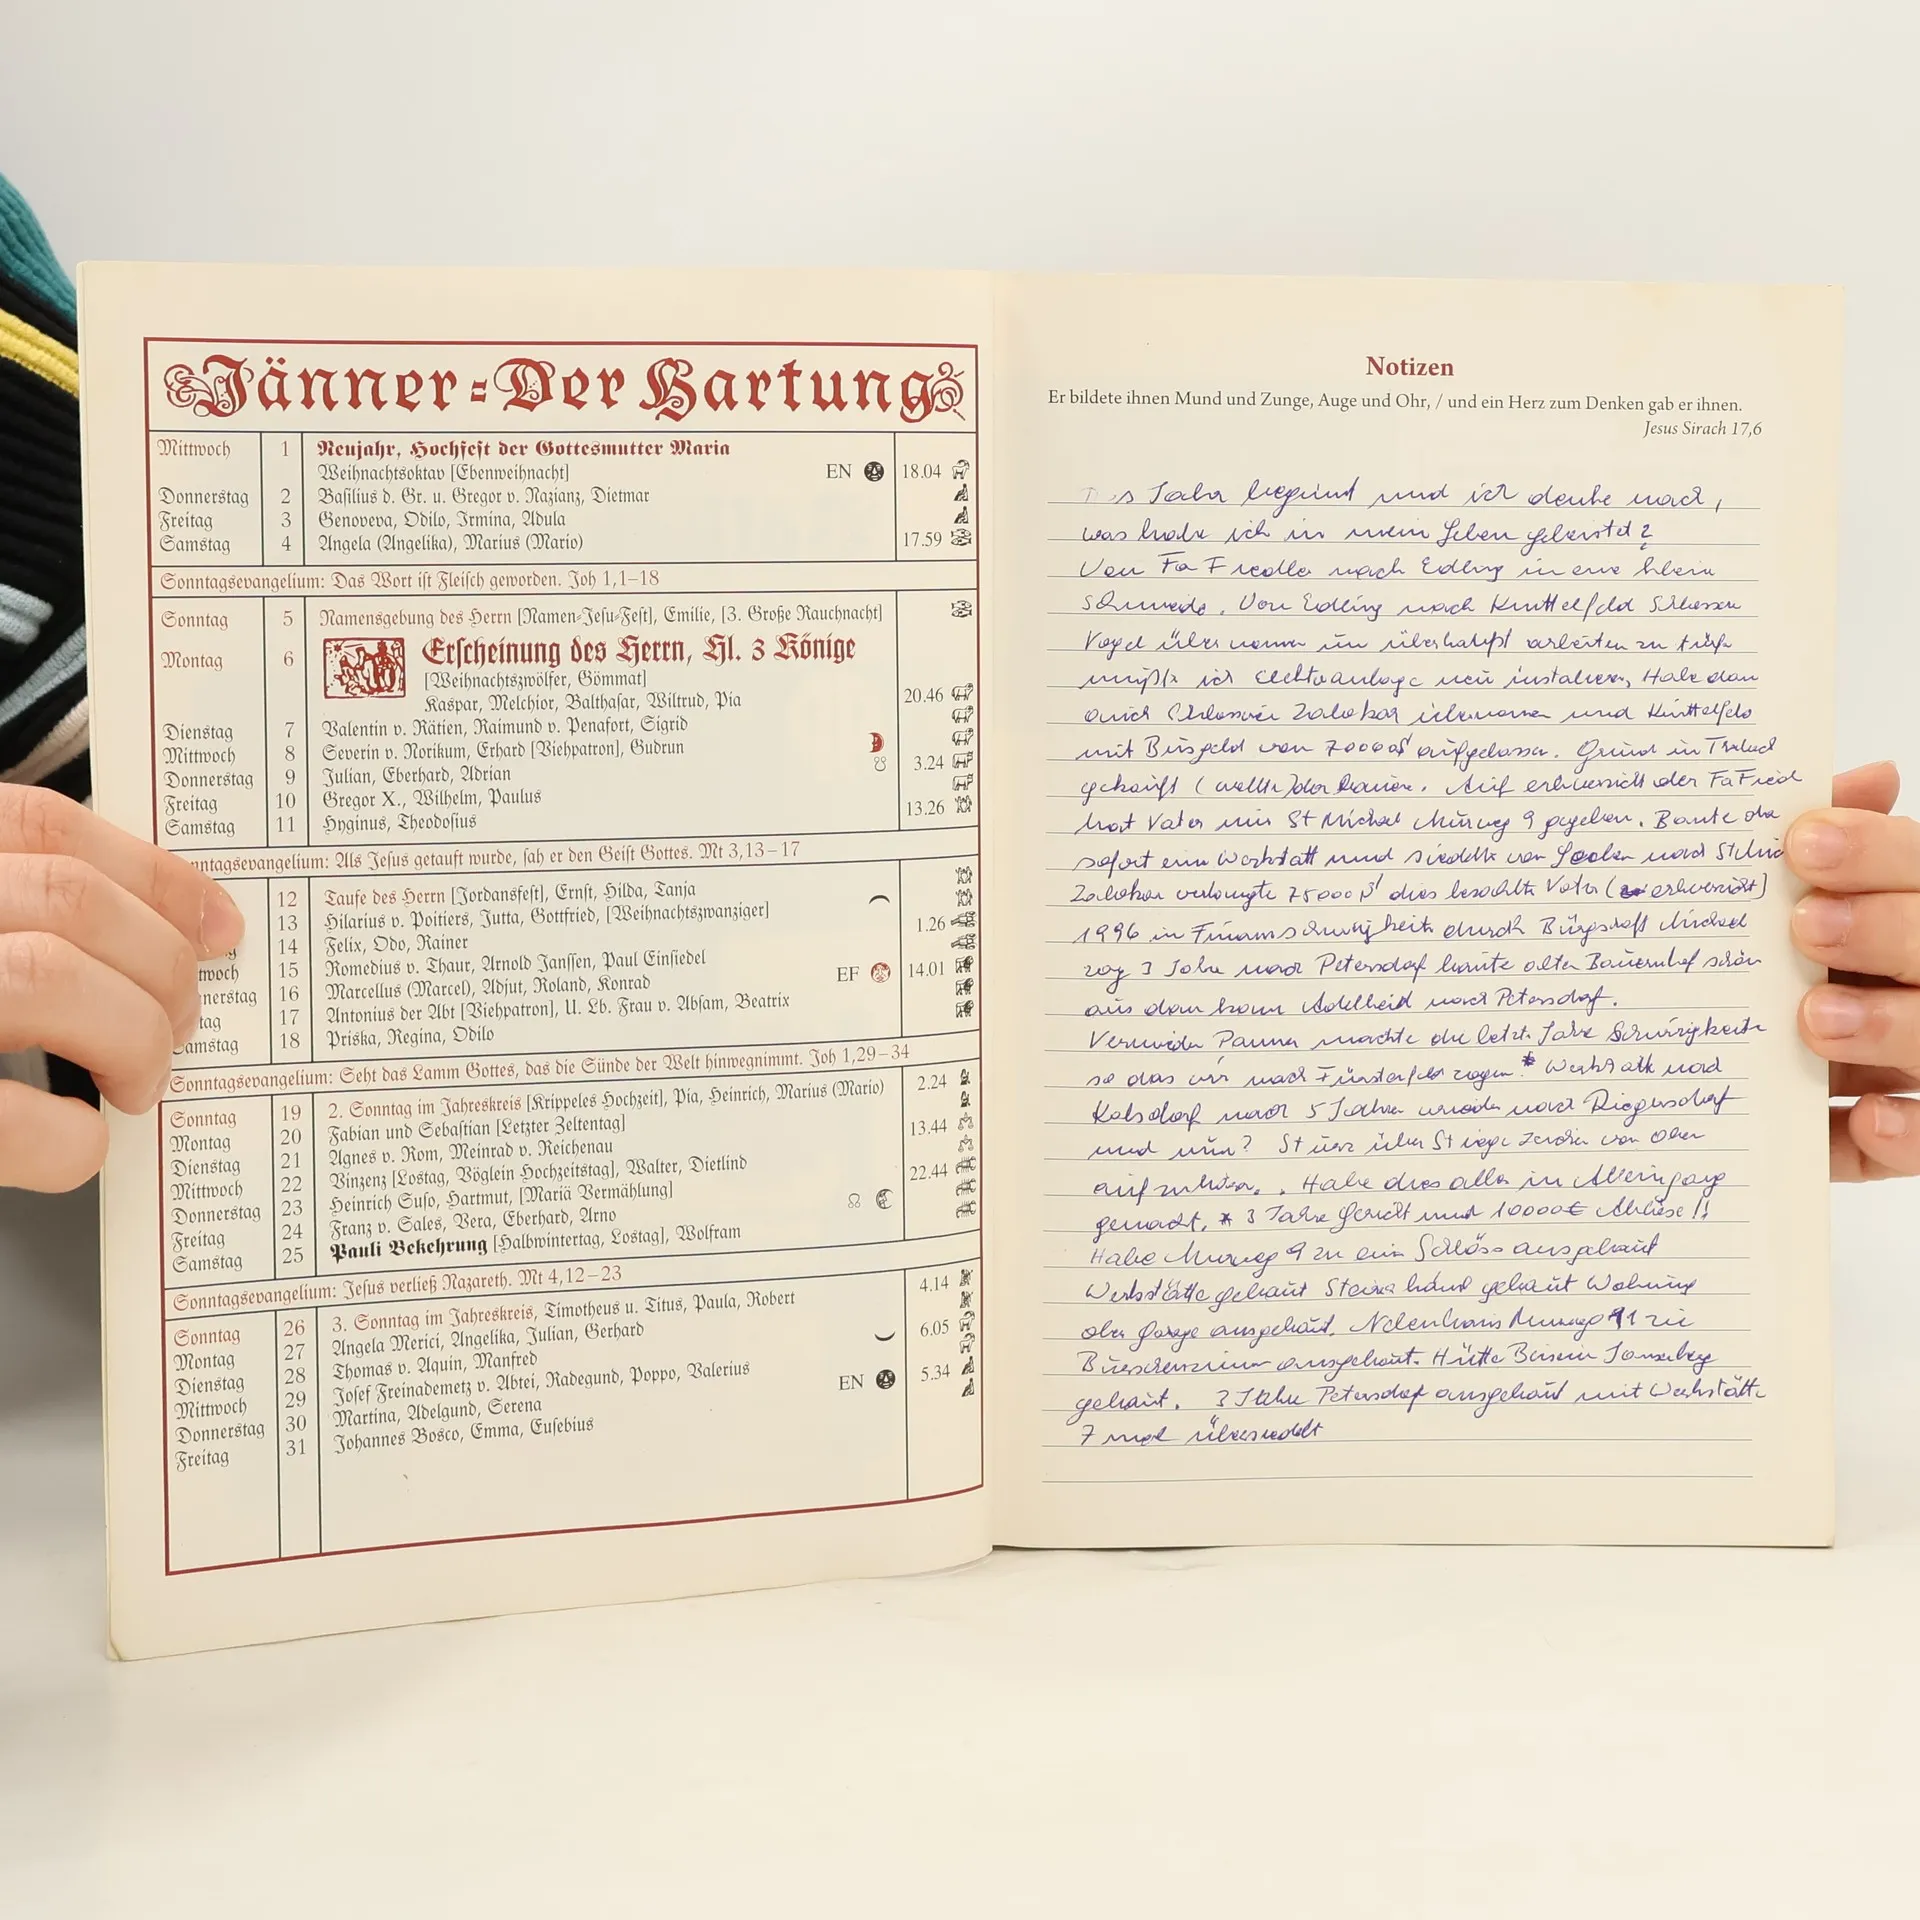 Jänner - Der Hartung
Mittwoch 1 Neujahr, Hochfest der Gottesmutter Maria
Weihnachtsoktav [Ebenweihnacht] EN 18.04
Donnerstag 2 Basilius d. Gr. u. Gregor v. Nazianz, Dietmar
Freitag 3 Genoveva, Odilo, Irmina, Adula
Samstag 4 Angela (Angelika), Marius (Mario) 17.59
Sonntagsevangelium: Das Wort ist Fleisch geworden. Joh 1,1–18
Sonntag 5 Namensgebung des Herrn [Namen-Jesu-Fest], Emilie, [3. Große Rauchnacht]
Montag 6 Erscheinung des Herrn, Hl. 3 Könige
[Weihnachtszwölfer, Gömmat]
Kaspar, Melchior, Balthasar, Wiltrud, Pia 20.46
Dienstag 7 Valentin v. Rätien, Raimund v. Penafort, Sigrid
Mittwoch 8 Severin v. Norikum, Erhard [Viehpatron], Gudrun
Donnerstag 9 Julian, Eberhard, Adrian 3.24
Freitag 10 Gregor X., Wilhelm, Paulus
Samstag 11 Hyginus, Theodosius 13.26
nntagsevangelium: Als Jesus getauft wurde, sah er den Geist Gottes. Mt 3,13–17
12 Taufe des Herrn [Jordansfest], Ernst, Hilda, Tanja
13 Hilarius v. Poitiers, Jutta, Gottfried, [Weihnachtszwanziger] 1.26
g 14 Felix, Odo, Rainer
twoch 15 Romedius v. Thaur, Arnold Janssen, Paul Einsiedel EF 14.01
nnerstag 16 Marcellus (Marcel), Adjut, Roland, Konrad
tag 17 Antonius der Abt [Viehpatron], U. Lb. Frau v. Absam, Beatrix
amstag 18 Priska, Regina, Odilo
Sonntagsevangelium: Seht das Lamm Gottes, das die Sünde der Welt hinwegnimmt. Joh 1,29–34
Sonntag 19 2. Sonntag im Jahreskreis [Krippeles Hochzeit], Pia, Heinrich, Marius (Mario) 2.24
Montag 20 Fabian und Sebastian [Letzter Zeltentag]
Dienstag 21 Agnes v. Rom, Meinrad v. Reichenau 13.44
Mittwoch 22 Vinzenz [Lostag, Vöglein Hochzeitstag], Walter, Dietlind
Donnerstag 23 Heinrich Suso, Hartmut, [Mariä Vermählung] 22.44
Freitag 24 Franz v. Sales, Vera, Eberhard, Arno
Samstag 25 Pauli Bekehrung [Halbwintertag, Lostag], Wolfram
Sonntagsevangelium: Jesus verließ Nazareth. Mt 4,12–23
Sonntag 26 3. Sonntag im Jahreskreis, Timotheus u. Titus, Paula, Robert 4.14
Montag 27 Angela Merici, Angelika, Julian, Gerhard
Dienstag 28 Thomas v. Aquin, Manfred 6.05
Mittwoch 29 Josef Freinademetz v. Abtei, Radegund, Poppo, Valerius
Donnerstag 30 Martina, Adelgund, Serena EN 5.34
Freitag 31 Johannes Bosco, Emma, Eusebius
Notizen
Er bildete ihnen Mund und Zunge, Auge und Ohr, / und ein Herz zum Denken gab er ihnen.
Jesus Sirach 17,6
Jahr begint und ich denke nach,
was habe ich in mein Leben geleistet?
Von Fa nach Edling in eine klein
Schmiede. Von Edling nach Knittelfeld
Vogel übernomen um überhaupt arbeiten zu
mußte ich Elektroanlage neu instalieren, Habe dan
auch und Knittelfeld
mit Busgeld von 70000 aufgelassen. Grund in
gekauft (wollte dor bauen. Auf der Fa
hat Vater mir St Michael Murweg 9 gegeben. Baute da
sofort ein Werkstatt und siedelte von nach
verlangte 75000 dies bezahlte Vater
1996 in durch Michael
zog 3 Jahre nach Petersdorf baute alten Bauernhof schön
aus dan kam Adelheid nach Petersdorf.
machte die letzt Jahre Schwirigkeite
so das wir nach Fürstenfeld zogen * Werkstatt nach
nach 5 Jahren wieder nach Riegersdorf
und nun? Sturz über Stiege von oben
Habe dies alles in Alleingang
gemacht. * 3 Jahre Gericht und 10000€ Ablöse!!
Habe Murweg 9 zu ein Schloss ausgebaut
Werkstätte gebaut gebaut Wohnung
ober Garage ausgebaut. Nebenhaus Murweg 11 zu
ausgebaut. Hütte
gebaut. 3 Jahre Petersdorf ausgebaut mit Werkstätte
7 mal übersiedelt